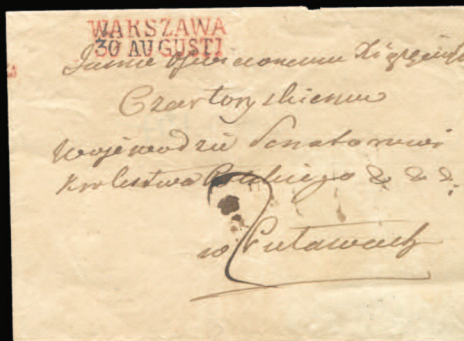 WARSZAWA
30 AUGUSTI
Jaśnie Oświeconemu Xiążęciu
Czartoryskiemu
Wojewodzie Senatorowi
Królestwa Polskiego & & &:
2
w Puławach